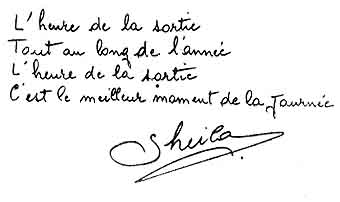 L'heure de la sortie
Tout au long de l'année
L'heure de la sortie
C'est le meilleur moment de la Journée
Sheila